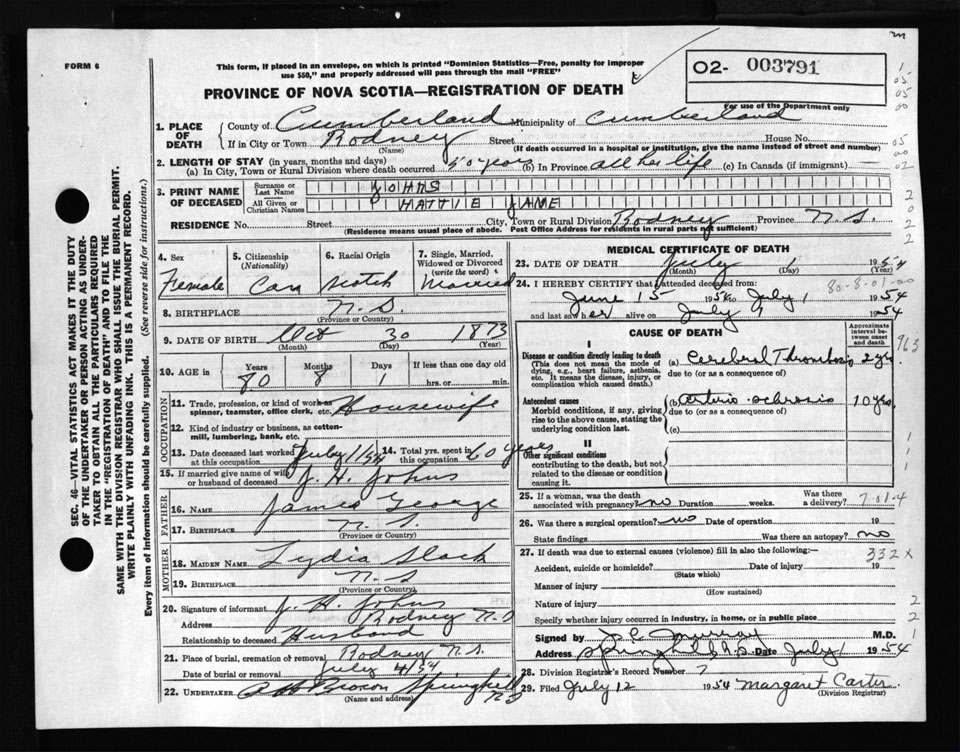 FORM 6
This form, if placed in an envelope, on which is printed "Dominion Statistics—Free, penalty for improper
use $50," and properly addressed will pass through the mail "FREE"
02- 003791
PROVINCE OF NOVA SCOTIA—REGISTRATION OF DEATH
For use of the Department only
1. PLACE OF DEATH
County of Cumberland Municipality of Cumberland
If in City or Town Rodney Street House No.
(Name) (If death occurred in a hospital or institution, give the name instead of street and number)
2. LENGTH OF STAY (in years, months and days)
(a) In City, Town or Rural Division where death occurred 50 years (b) In Province all her life (c) In Canada (if immigrant) —
3. PRINT NAME OF DECEASED
Surname or Last Name JOHNS
All Given or Christian Names HATTIE JANE
RESIDENCE No. Street City, Town or Rural Division Rodney Province N.S.
(Residence means usual place of abode. Post Office Address for residents in rural parts not sufficient)
4. Sex Female
5. Citizenship (Nationality) Can
6. Racial Origin Scotch
7. Single, Married, Widowed or Divorced (write the word) Married
8. BIRTHPLACE N.S.
(Province or Country)
9. DATE OF BIRTH Oct 30 1873
(Month) (Day) (Year)
10. AGE in Years 80 Months 8 Days 1 If less than one day old
hrs. or min.
OCCUPATION
11. Trade, profession, or kind of work as
spinner, teamster, office clerk, etc. Housewife
12. Kind of industry or business, as cotton-
mill, lumbering, bank, etc.
13. Date deceased last worked at this occupation July 1/54 14. Total yrs. spent in this occupation 60 years
15. If married give name of wife
or husband of deceased J. H. Johns
FATHER
16. NAME James George
17. BIRTHPLACE N.S.
(Province or Country)
MOTHER
18. MAIDEN NAME Lydia Slack
19. BIRTHPLACE N.S
(Province or Country)
20. Signature of informant J. H. Johns
Address Rodney N.S
Relationship to deceased Husband
21. Place of burial, cremation or removal Rodney N.S.
Date of burial or removal July 4/54
22. UNDERTAKER Springhill N.S
(Name and address)
MEDICAL CERTIFICATE OF DEATH
23. DATE OF DEATH July 1 1954
(Month) (Day) (Year)
24. I HEREBY CERTIFY that I attended deceased from:
30-8-01-00
June 15 1954 to July 1 1954
and last saw her alive on July 1954
CAUSE OF DEATH
Approximate interval between onset and death
I
Disease or condition directly leading to death
(This does not mean the mode of
dying, e.g., heart failure, asthenia,
etc. It means the disease, injury, or
complication which caused death.)
(a) Cerebral Thrombosis 2 yrs
due to (or as a consequence of)
Antecedent causes
Morbid conditions, if any, giving
rise to the above cause, stating the
underlying condition last.
(b) arterio-sclerosis 10 yrs
due to (or as a consequence of)
(c)
II
Other significant conditions
contributing to the death, but not
related to the disease or condition
causing it.
25. If a woman, was the death
associated with pregnancy? no Duration weeks. Was there a delivery? 7-01-4
26. Was there a surgical operation? no Date of operation 19
State findings Was there an autopsy? no
27. If death was due to external causes (violence) fill in also the following:— 332X
Accident, suicide or homicide? Date of injury 19
(State which)
Manner of injury
(How sustained)
Nature of injury
Specify whether injury occurred in industry, in home, or in public place
Signed by J. E. Murray M.D.
Address Springhill N.S. Date July 1 1954
28. Division Registrar's Record Number 7
29. Filed July 12 1954 Margaret Carter
(Division Registrar)
SEC. 46—VITAL STATISTICS ACT MAKES IT THE DUTY
OF THE UNDERTAKER OR PERSON ACTING AS UNDER-
TAKER TO OBTAIN ALL THE PARTICULARS REQUIRED
IN THE "REGISTRATION OF DEATH" AND TO FILE THE
SAME WITH THE DIVISION REGISTRAR WHO SHALL ISSUE THE BURIAL PERMIT.
WRITE PLAINLY WITH UNFADING INK. THIS IS A PERMANENT RECORD.
Every item of information should be carefully supplied. (See reverse side for instructions.)